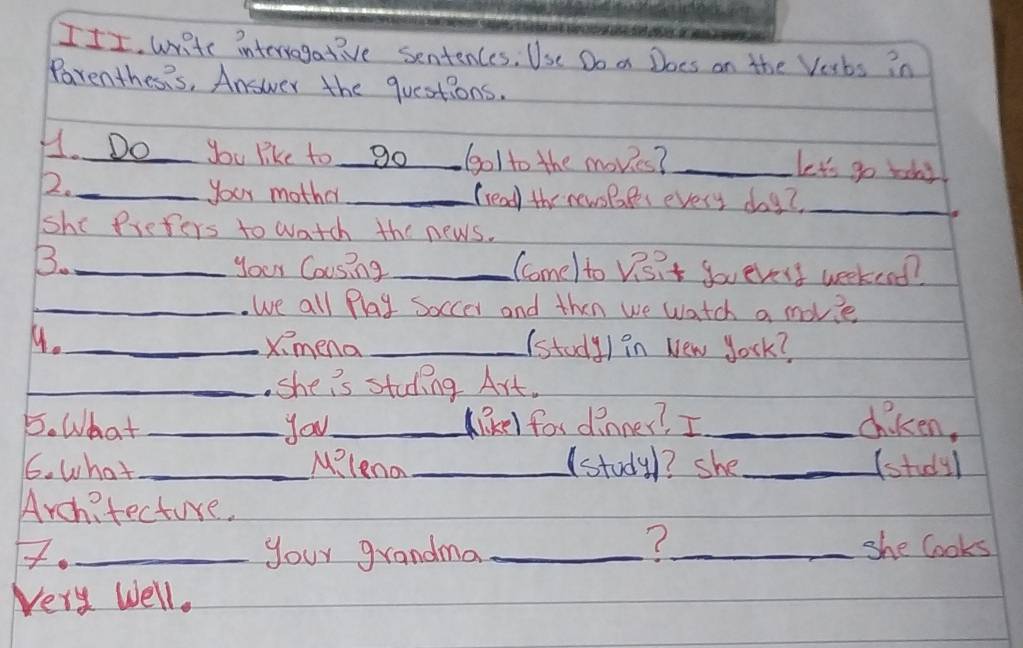 III. Write interrogative Sentences. Use Do or Does on the Verbs in
Parenthesis. Answer the questions.
1. Do you like to go (go) to the movies? ______ let's go today
2. ______ your mother ______ (read) the newspaper every day? ______.
she Prefers to watch the news.
3. ______ your Cousing ______ (come) to Visit you every weekend?
______. We all Play Soccer and then we watch a movie
4. ______ Ximena ______ (study) in New York?
______. she is studing Art.
5. What ______ you ______ (like) for dinner? I ______ chiken.
6. What ______ Milena ______ (study)? she ______ (study)
Architecture.
7. ______ your grandma ______? ______ she Cooks
Very Well.